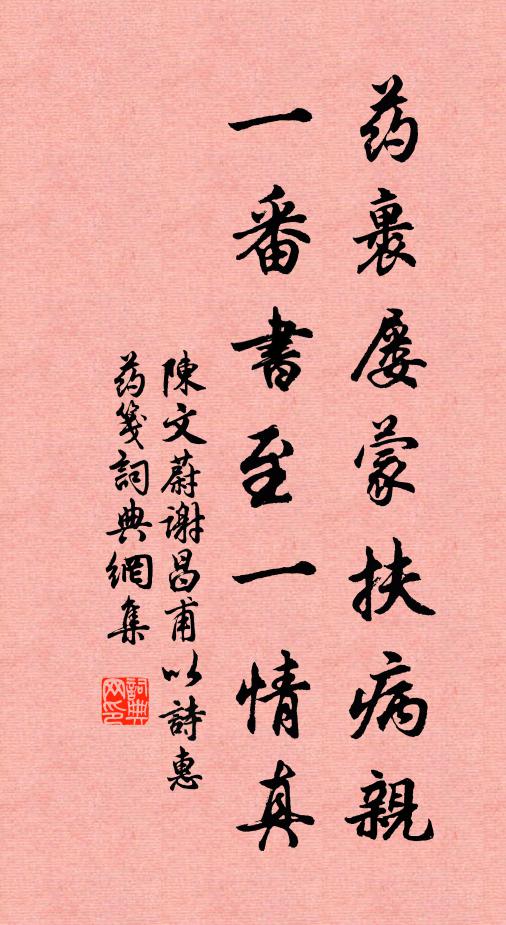 药裹屡蒙扶病親
一番書至一情真
陳文蔚谢昌甫以詩惠
药笺詞典網集
詞典网印